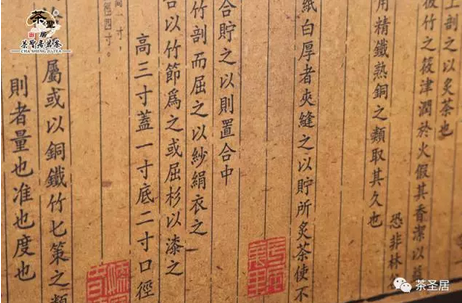 上剖之以炙茶也
彼竹之筱津潤於火假其香潔以益
恐非林
用精鐵熟銅之類取其久也
紙白厚者夾縫之以貯所炙茶使不
合貯之以則置合中
竹剖而屈之以紗絹衣之
合以竹節爲之或屈杉以漆之
高三寸蓋一寸底二寸口徑
屬或以銅鐵竹匕策之類
則者量也准也度也
茶圣居
茶圣居